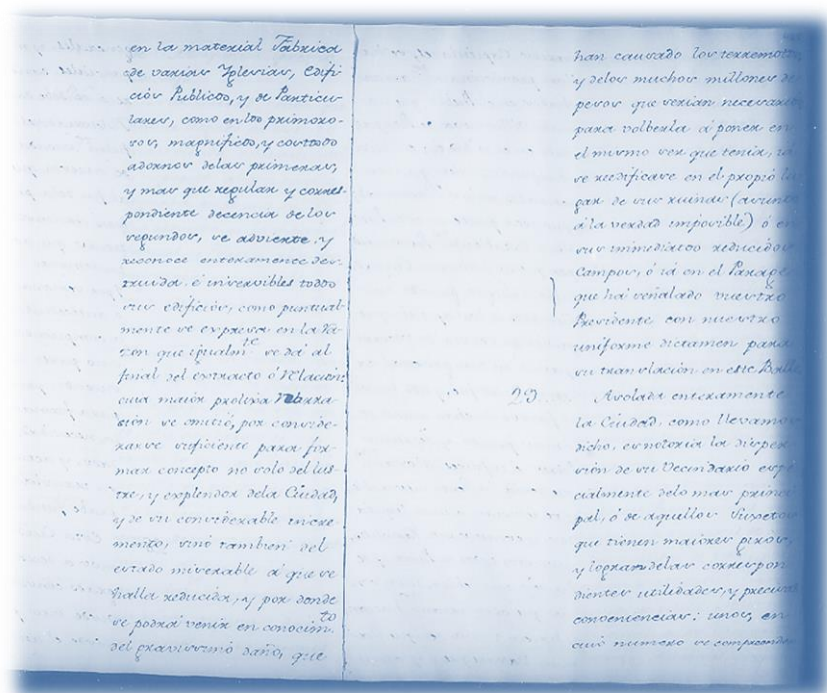 en la material Fabrica
de varias Yglesias, Edifi-
cios Publicos, y de Particu-
lares, como en los primoro-
sos, magnificos, y costosos
adornos delas primeras,
y mas que regular y corres-
pondiente decencia de los
segundos, se advierte y
reconoce enteramente des-
truida, é inservibles todos
sus edificios, como puntual-
mente se expresa en la Ra-
zon que igualmte se dá al
final del extracto ó Relacion,
cuia maior prolixa Narra-
cion se omitió, por conside-
rarse suficiente para for-
mar concepto no solo del lus-
tre, y esplendor dela Ciudad,
y de su considerable incre-
mento, sinó tambien del
estado miserable á que se
halla reducida, y por donde
se podrá venir en conocimto
del gravissimo daño, que
han causado los terremotos,
y delos muchos millones de
pesos que serian necesarios
para volberla á poner en
el mismo ser que tenia, si
se reedificase en el proprio lu-
gar de sus ruinas (asunto
á la verdad imposible) ó en
sus inmediatos reducidos
Campos, ó si en el Parage
que há señalado vuestro
Presidente con nuestro
uniforme dictamen para
su translación en este Balle.
Asolada enteramente
la Ciudad, como llevamos
dicho, es notoria la disper-
sión de su Vecindario espe-
cialmente delo mas princi-
pal, ó de aquellos Sugetos
que tienen maiores giros,
y logran delas correspon
dientes utilidades, y precisas
conveniencias: unos, en
cuio numero se comprende